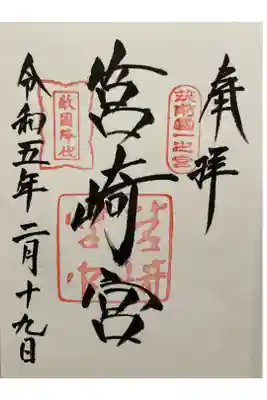 奉拝
筑前國一之宮
筥崎宮
敵國降伏
令和五年二月十九日